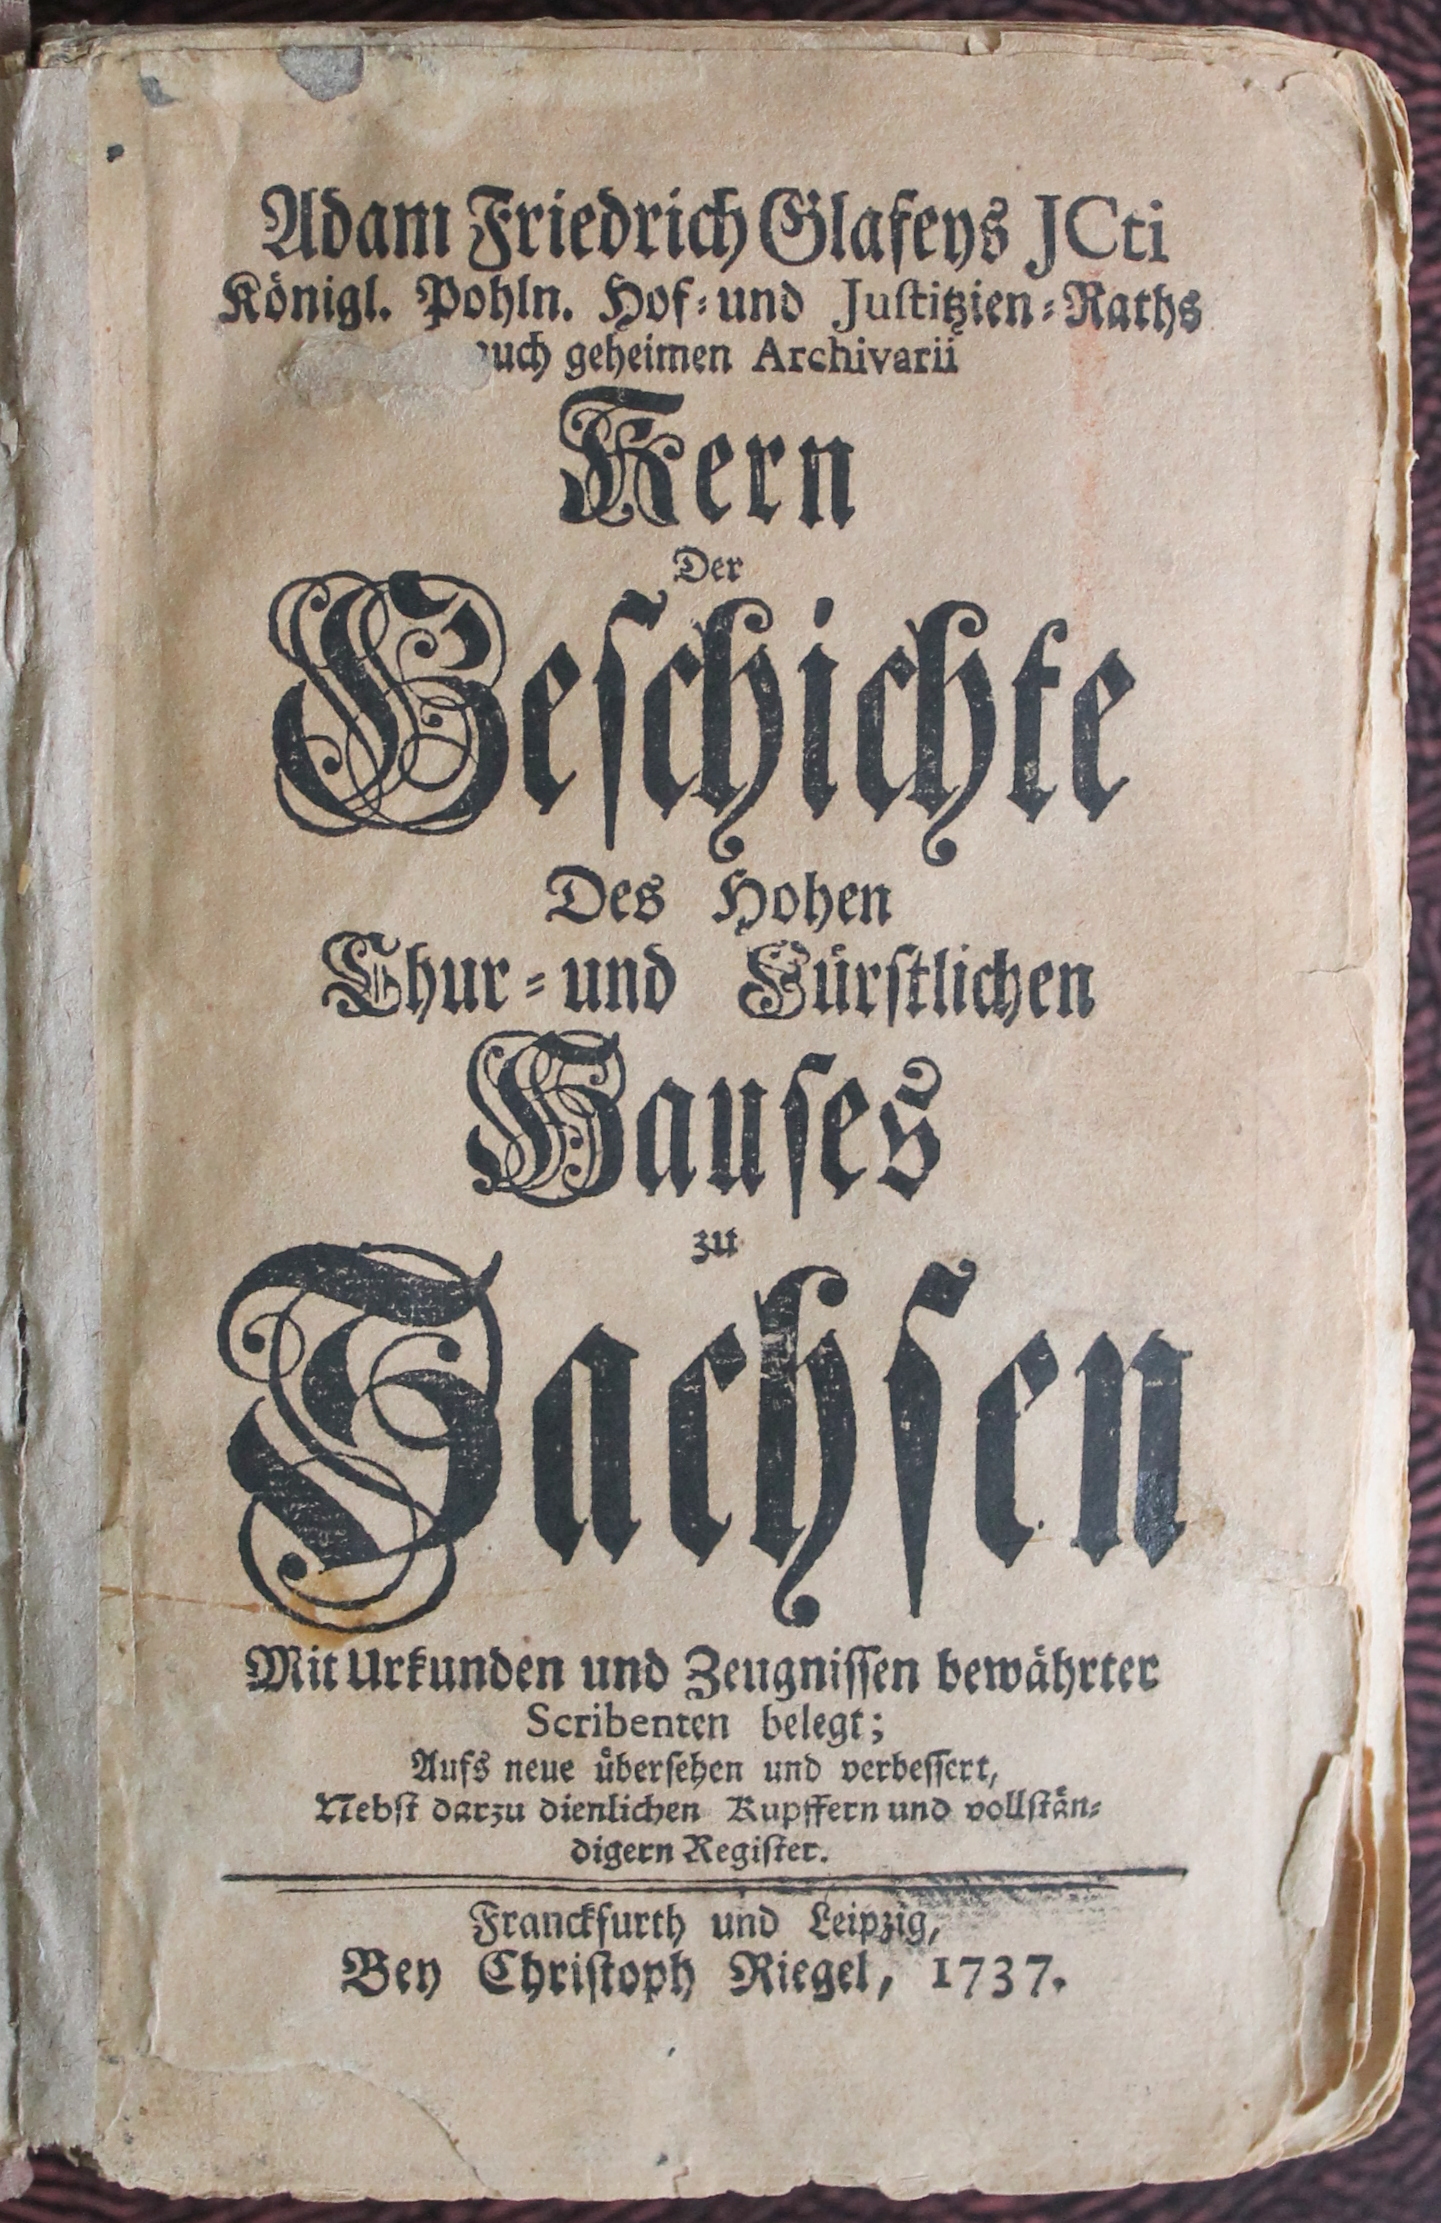 Adam Friedrich Glafeys JCti
Königl. Pohln. Hof-und Justitzien-Raths
auch geheimen Archivarii
Kern
Der
Geschichte
Des Hohen
Chur-und Fürstlichen
Hauses
zu
Sachsen
Mit Urkunden und Zeugnissen bewährter
Scribenten belegt;
Aufs neue übersehen und verbessert,
Nebst darzu dienlichen Kupffern und vollstän-
digern Register.
Franckfurth und Leipzig,
Bey Christoph Riegel, 1737.